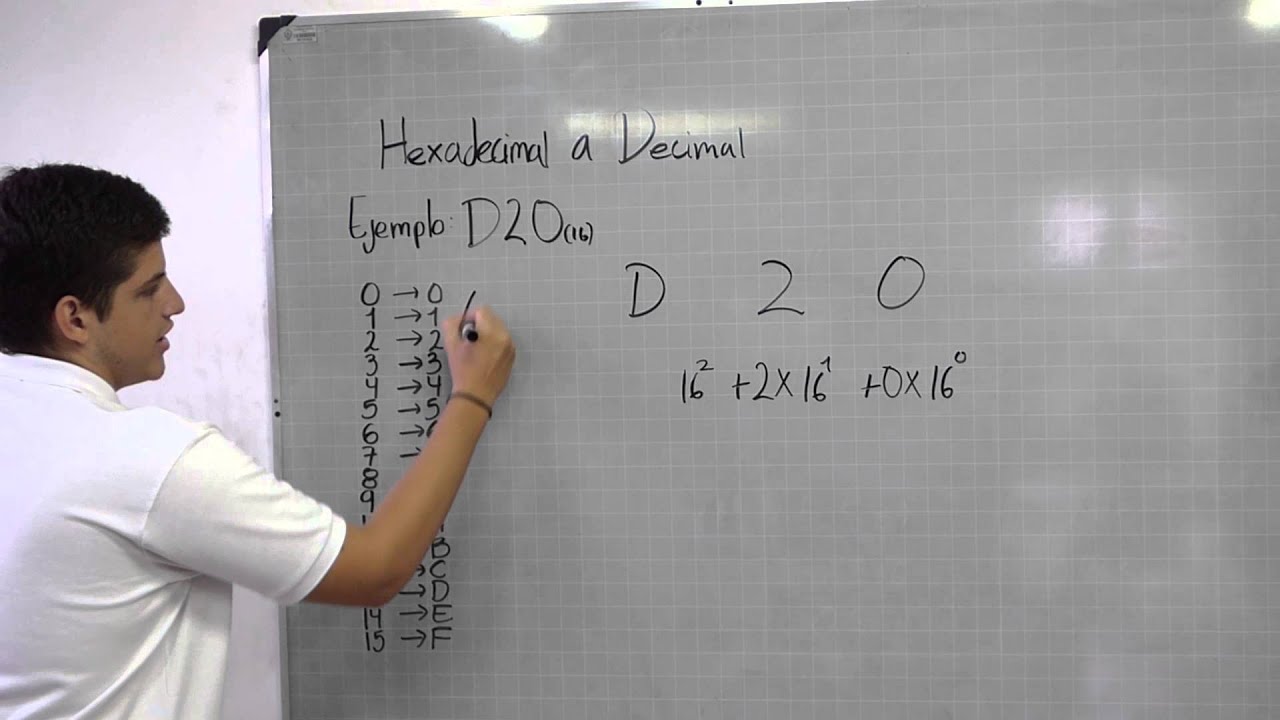 Hexadecimal a Decimal
Ejemplo: D20(16)
D 2 0
0 → 0
1 → 1
2 → 2
3 → 3
4 → 4
5 → 5
6 →
7 →
8
9
B
C
→ D
14 → E
15 → F
16² + 2 × 16¹ + 0 × 16⁰